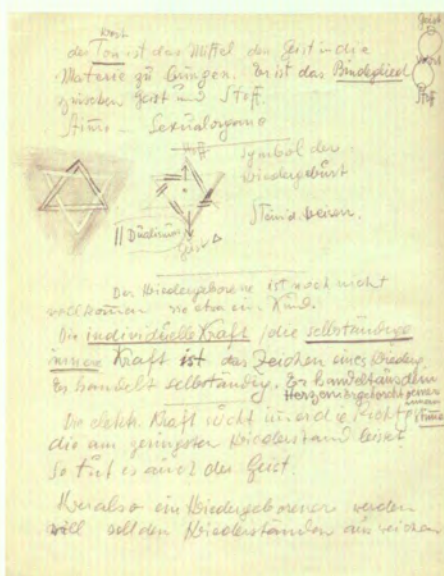 Geist
Wort
Stoff
Wort
der Ton ist das Mittel den Geist in die
Materie zu bringen. Er ist das Bindeglied
zwischen Geist und Stoff.
Sexualorgane
Stoff
Symbol der
Wiedergeburt
Stein d. Weisen.
|| Dualismus
Geist Δ
Der Wiedergeborene ist noch nicht
vollkommen wie etwa ein Kind.
Die individuelle Kraft / die selbständige
innere Kraft ist das Zeichen eines Wiederg.
Er handelt selbständig. Er handelt aus dem
Herzen gehorcht seiner
inneren
Stimme
Die elektr. Kraft sucht immer die Richtg.
die am geringsten Wiederstand leistet
So tut es auch der Geist.
Wer also ein Wiedergeborener werden
will soll den Wiederständen ausweichen